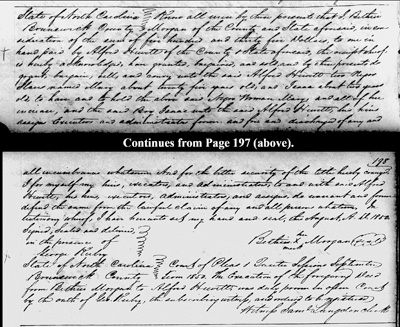 State of North Carolina Know all men by these presents that I Bethia
Brunswick County Morgan of the County and State aforesaid, in con
sideration of the sum of five hundred and thirty five Dollars to me in
hand paid by Alfred Hewett of the County & State aforesaid, the receipt whereof
is hereby acknowledged, have granted, bargained, and sold, and by these presents do
grant, bargain, sell, and convey unto the said Alfred Hewett two Negro
Slaves named Mary about twenty five years old, and Isaac about two years
old to have, and to hold the above said Negro Woman Mary and all of her
increase, and the said Boy Isaac unto the said Alfred Hewett, his heirs
assigns Executors and administrators forever and free and discharged of any and
Continues from Page 197 (above).
198
all incumbrance whatever And for the better security of the title hereby conveyed
I for myself my heirs, executors, and administrators, to and with said Alfred
Hewett, his heirs, executors, administrators, and assigns, do warrant and forever
defend the same from the lawful claim of any and all persons whatever. In
testimony whereof, I have hereunto set my hand and seal, this August, A. D. 1850.
Signed, sealed and delivered,
in the presence of
George Kirby
her
Bethia X Morgan (Seal)
mark
State of North Carolina Court of Pleas & Quarter Sessions September
Brunswick County Term 1850. The Execution of the foregoing Deed
from Bethia Morgan to Alfred Hewett was duly proven in open Court
by the oath of Geo Kirby, the subscribing witness, and ordered to be registered
Witness Saml Langdon Clerk